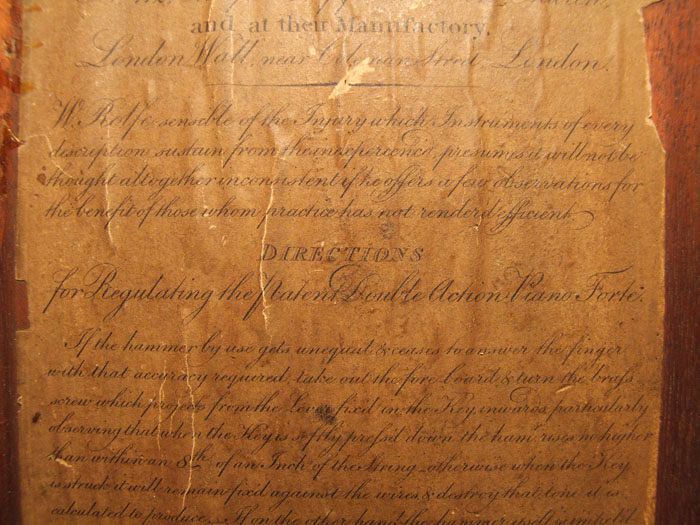 and at their Manufactory,
London Wall, near Coleman Street, London.
W. Rolfe sensible of the Injury which Instruments of every
description sustain from the inexperienced, presumes it will not be
thought altogether inconsistent if he offers a few observations for
the benefit of those whom practice has not renderd efficient
DIRECTIONS
for Regulating the Patent Double Action Piano Forte.
If the hammer by use gets unequal & ceases to answer the finger
with that accuracy required, take out the fore board & turn the braſs
screw which projects from the Lever fix'd in the Key, inwards, particularly
observing that when the Key is softly preſs'd down the hamr. rises no higher
than within an 8th. of an Inch of the String, otherwise when the Key
is struck it will remain fix'd against the wires & destroy that tone it is
calculated to produce. If on the other hand the hammer